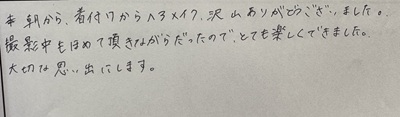 *朝から、着付けからヘアメイク、沢山ありがとうございました。
撮影中もほめて頂きながらだったので、とても楽しくできました。
大切な思い出にします。